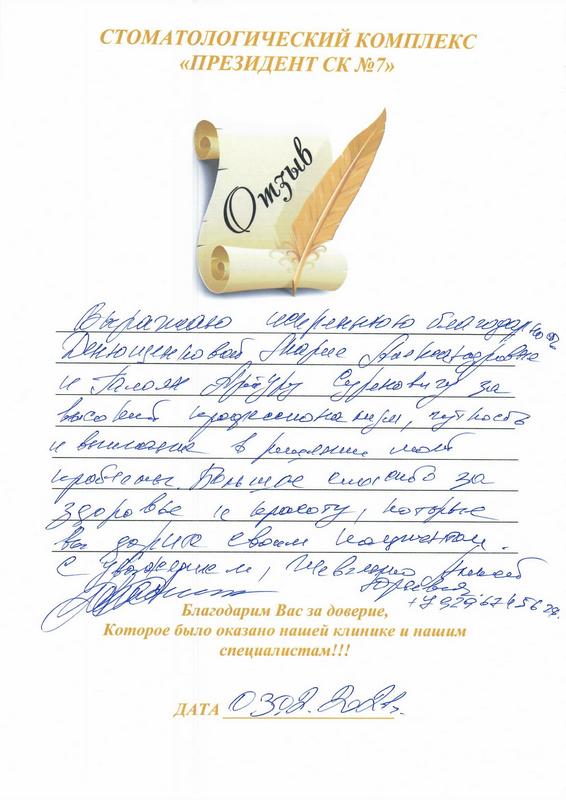 СТОМАТОЛОГИЧЕСКИЙ КОМПЛЕКС
«ПРЕЗИДЕНТ СК №7»
Отзыв
Выражаю искреннюю благодарность
Марие Александровне
и Галоян Артуру Суреновичу за
высокий профессионализм, чуткость
и внимание в решении моей
проблемы. Большое спасибо за
здоровье и красоту, которые
вы дарите своим пациентам.
С уважением, Шевченко
Юрьевна
Благодарим Вас за доверие,
Которое было оказано нашей клинике и нашим
специалистам!!!
ДАТА